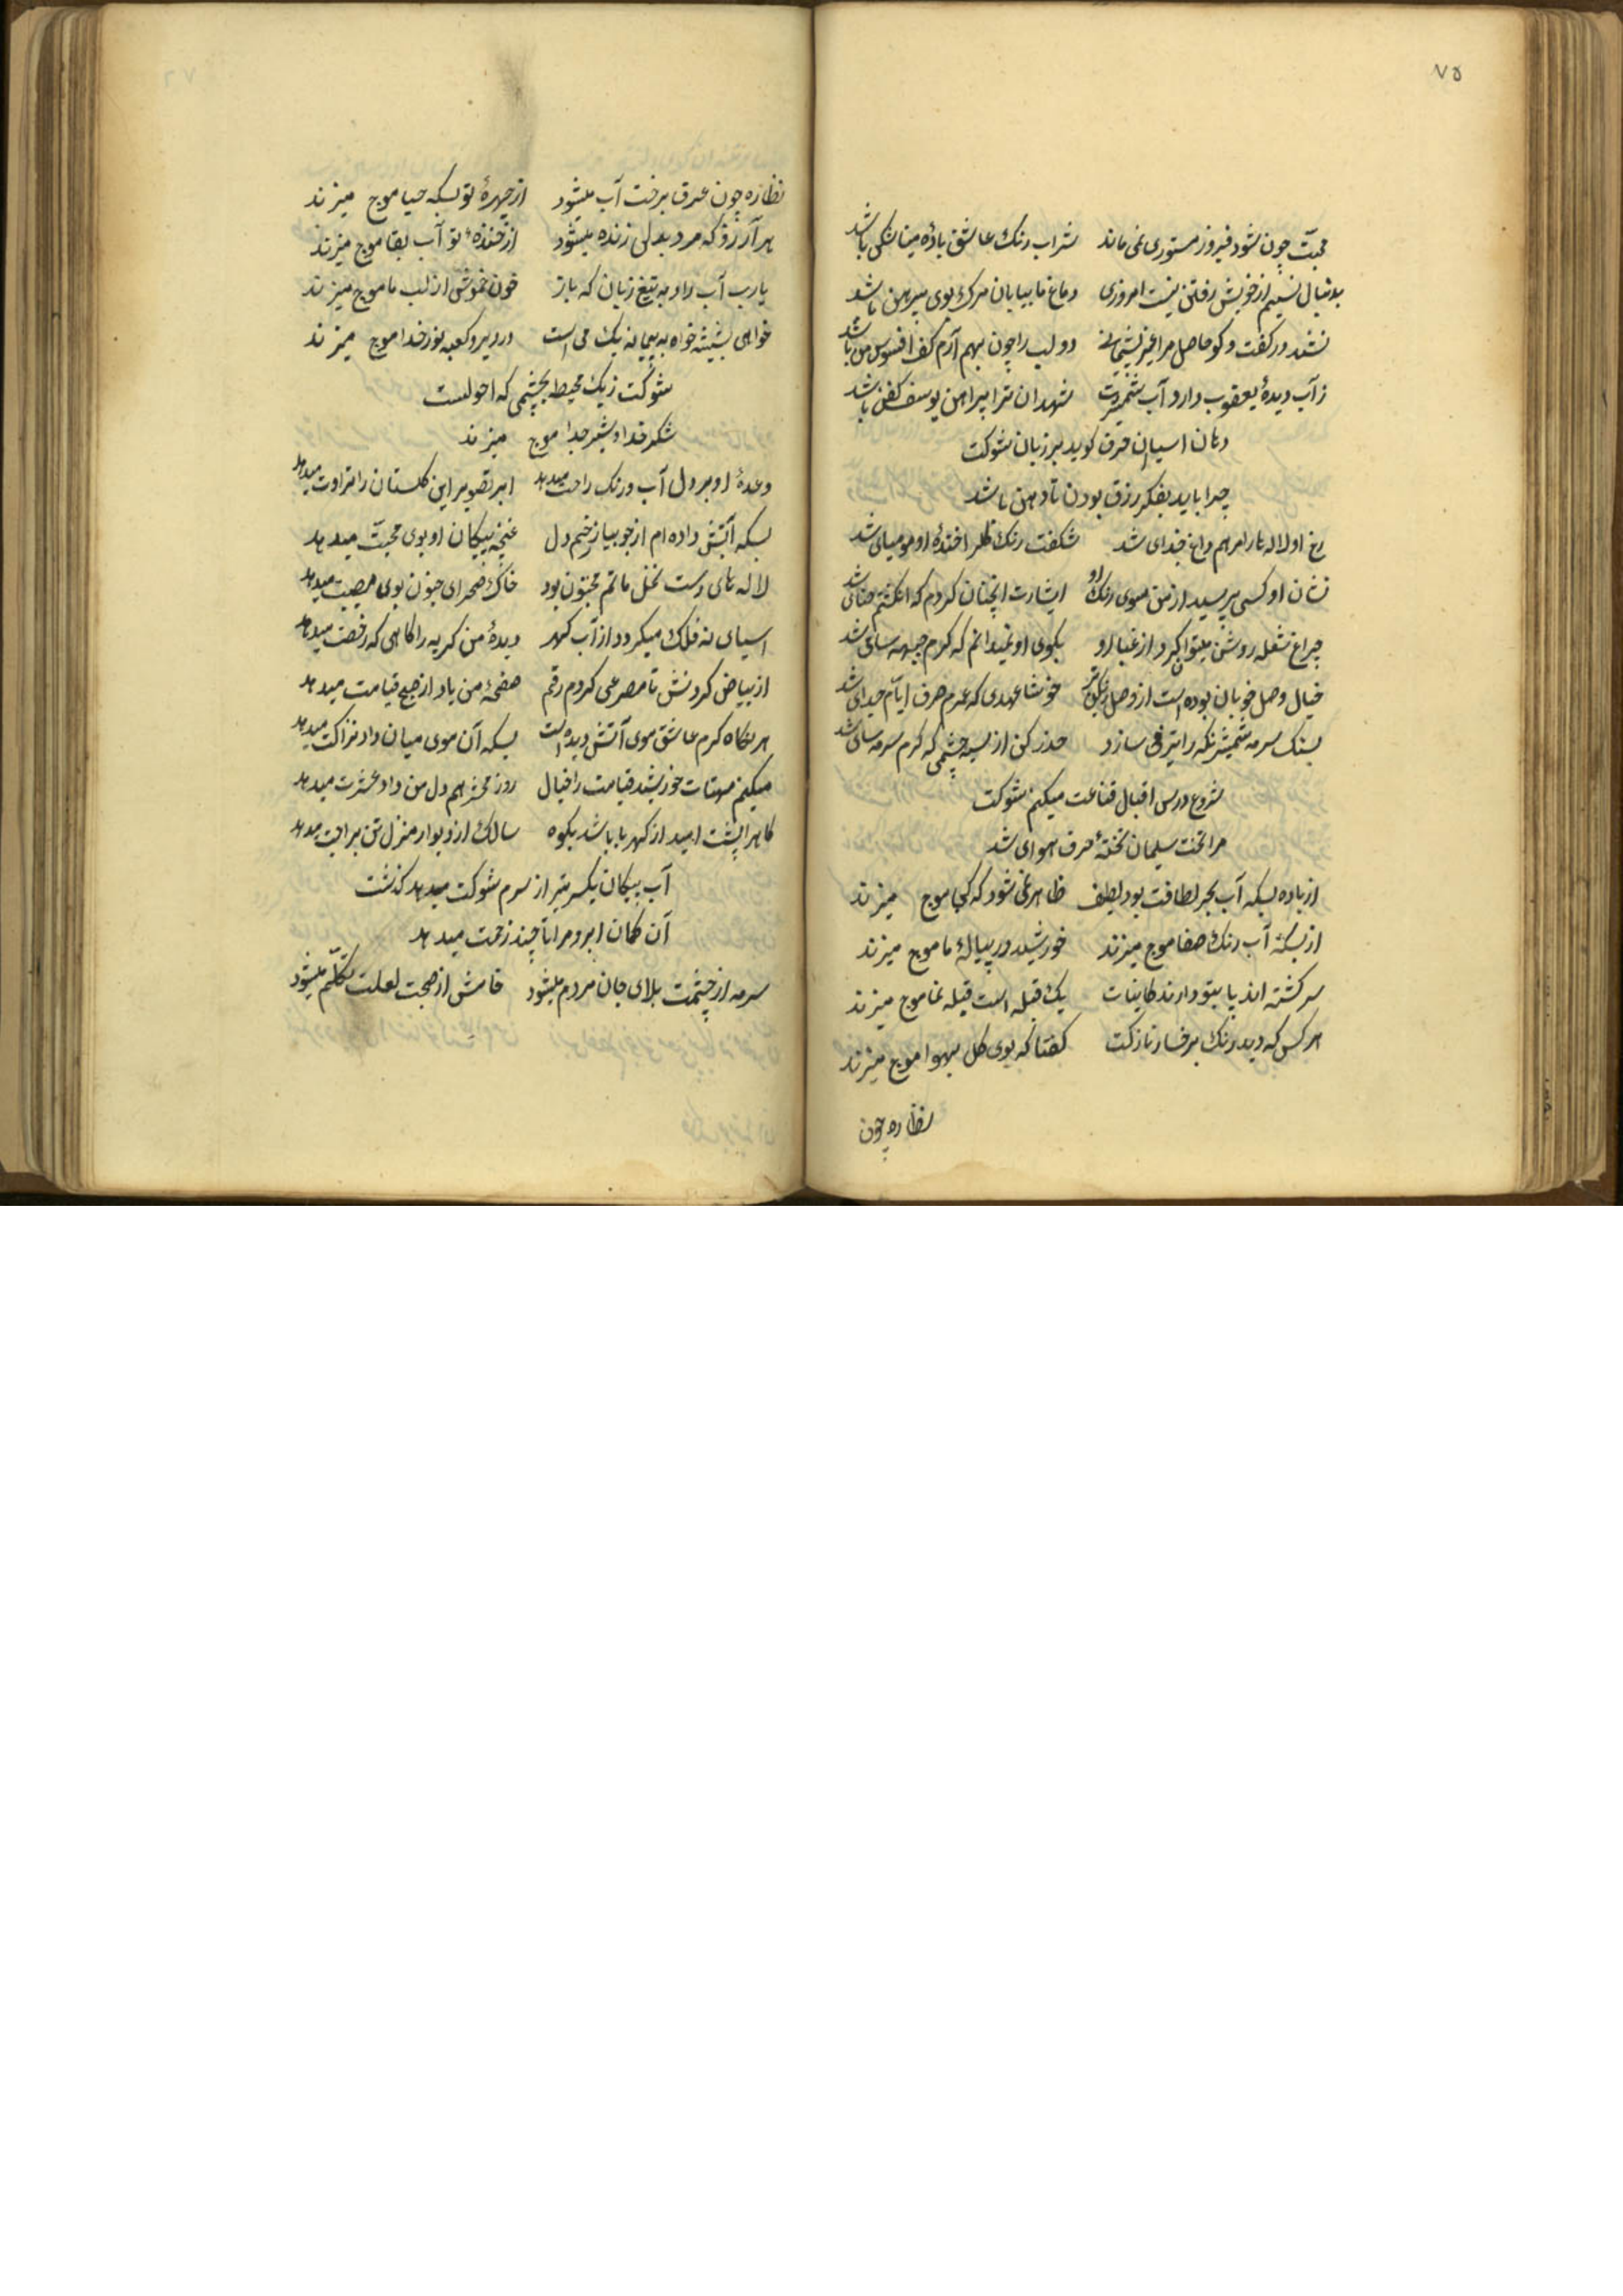 ۷۵
محبت چون شود فیروز مستوری نمی ماند شراب رنک عاشق بادهٔ مینا شکن باشد
بدنبال نسیم از خویش رفتن نیست امروزی دماغ ما بیابان مرک بوی پیرهن باشد
نشد در کفت و کو حاصل مرا غیر پشیمانی دو لب را چون بهم آرم کف افسوس من باشد
ز آب دیدهٔ یعقوب دارد آب شمشیرت شهیدان ترا پیراهن یوسف کفن باشد
دهان آسیا این حرف کوید بر زبان شوکت
چرا باید بفکر رزق بودن تا دهن باشد
رخ او لاله ها را مرهم داغ جدای شد شکفت رنک کلها خندهٔ او مومیای شد
نشان او کسی پرسید از من سوی رنک او اشارت آنچنان کردم که انکشتم حنائی شد
چراغ شعله روشن میتوان کرد از غبار او بکوی او نمیدانم که کرم جبهه سائی شد
خیال وصل خوبان بوده است از وصل رنکین تر خوشا عهدی که عمرم صرف ایام جدای شد
بسنک سرمه شمشیر نکه را تیز می سازد حذر کن از سیه چشمی که کرم سرمه سائی شد
شروع درس اقبال قناعت میکنم شوکت
مرا تخت سلیمان تختهٔ حرف هوای شد
از باده بسکه آب بحر لطافت بود لطیف ظاهر نمی شود که کجا موج میزند
از بسکه آب رنک صفا موج میزند خورشید در پیالهٔ ما موج میزند
سر کشته اند یا بتو دارند کاینات یک قبله است قبله نما موج میزند
هر کس که دید رنک بر خسار نازکت کفتا که بوی کل بهوا موج میزند
نظاره چون
نظاره چون عرق برخت آب میشود از چهرهٔ تو بسکه حیا موج میزند
هر آرزو که مرد بدلی زنده میشود از خندهٔ تو آب بقا موج میزند
یارب آب داد به تیغ زبان که باز خون خموشی از لب ما موج میزند
خواهی بشیشه خواه به پیمانه یک می است در دیر و کعبه نور خدا موج میزند
شوکت ز یک محیط بچشمی که احولست
شکر خدا و شیر جدا موج میزند
وعدهٔ او بر دل آب و رنک راحت میدهد ابر تصویر این کلستان را طراوت میدهد
بسکه آتش داده ام از جویبار زخم دل غنچه پیکان او بوی محبت میدهد
لاله های رست نخل ماتم مجنون بود خاک صحرای جنون بوی مصیبت میدهد
آسیای نه فلک میکردد از آب کهر دیدهٔ من کریه را کاهی که رخصت میدهد
از بیاض کردنش تا مصرعی کردم رقم صفحهٔ من یاد از صبح قیامت میدهد
هر نکاه کرم عاشق موی آتش دیده است بسکه آن موی میان داد نزاکت میدهد
میکنم مهتاب خورشید قیامت را خیال روز محشر هم دل من داد عشرت میدهد
کاه را پشت امید از کهربا باشد بکوه سالک از دیوار منزل تن براحت میدهد
آب پیکان یکسر تیر از سرم شوکت میدهد کذشت
آن کمان ابرو مرا تا چند زحمت میدهد
سرمه از چشمت بلای جان مردم میشود خامش از صحبت لعلت تکلّم میشود